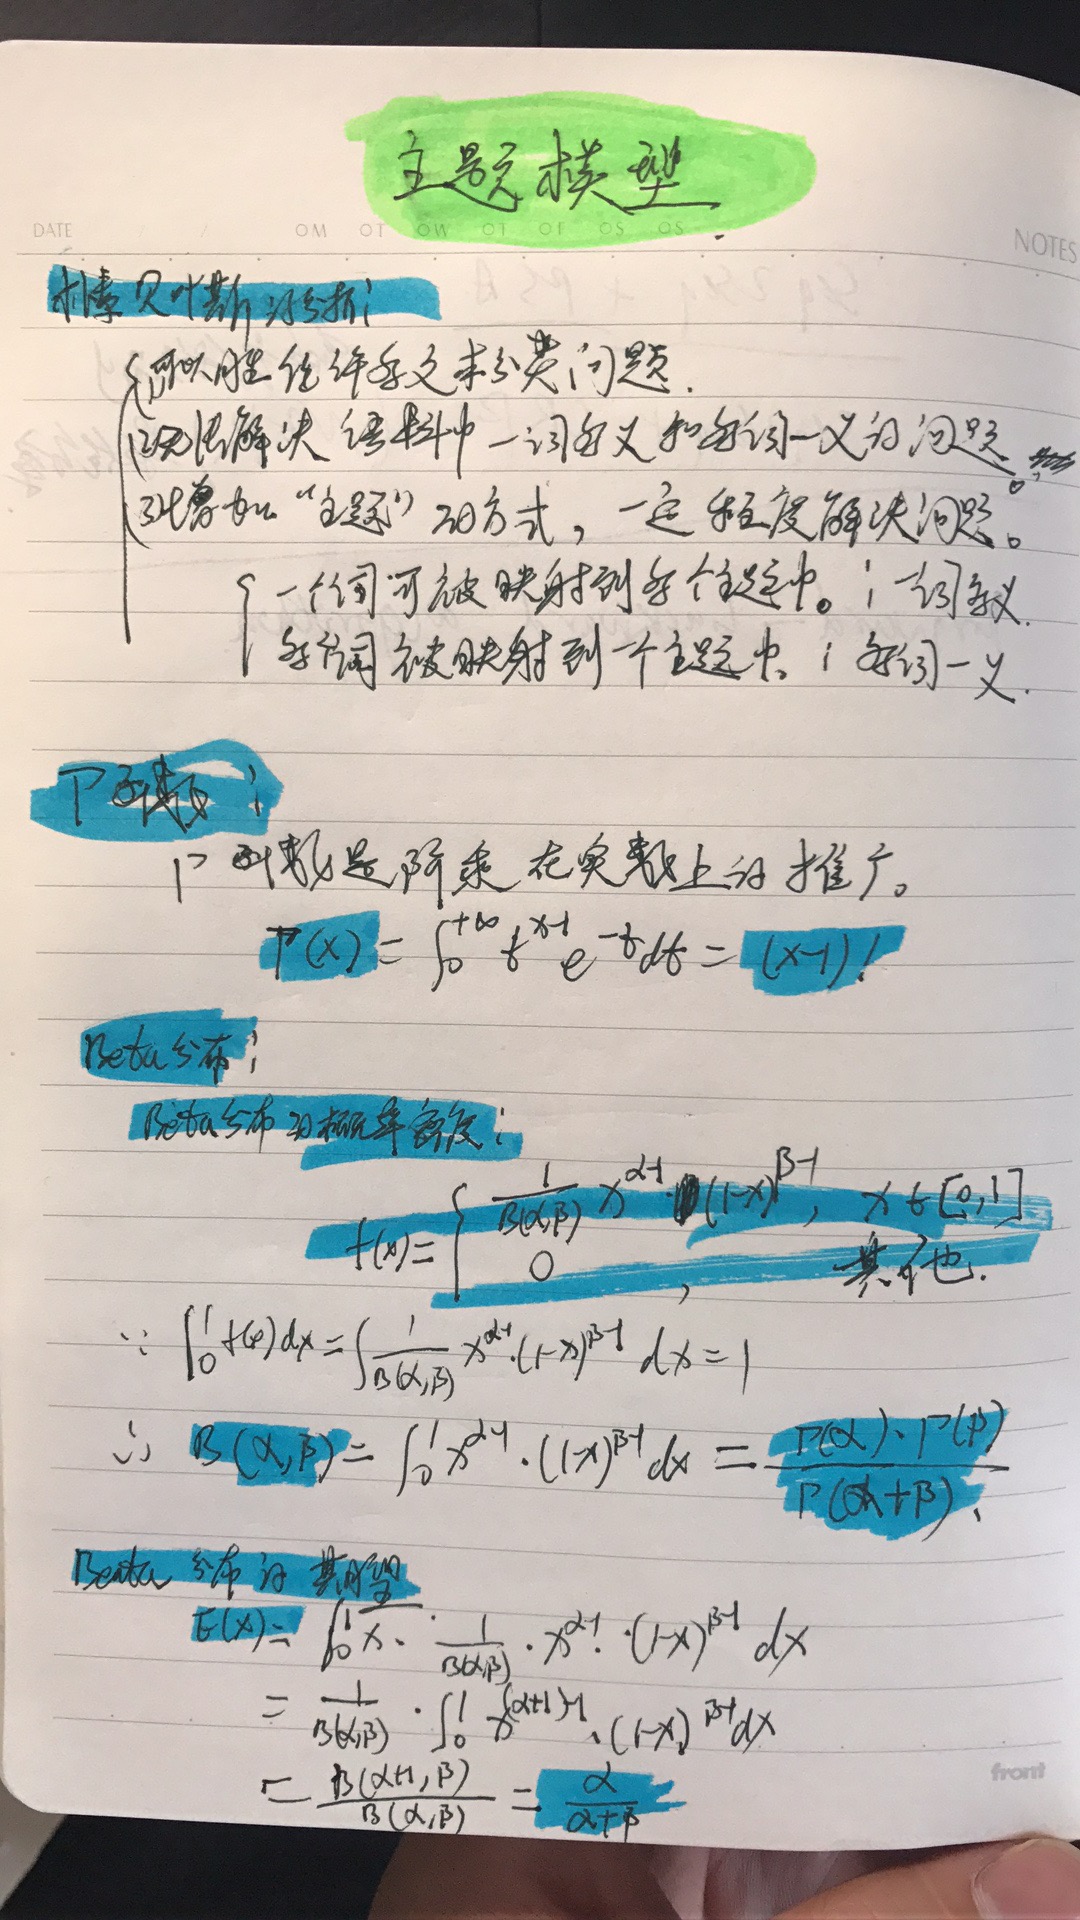 主题模型
DATE / / OM OT OW OT OF OS OS
NOTES
朴素贝叶斯的分析:
(1)可以胜任许多文本分类问题.
(2)无法解决语料中一词多义和多词一义的问题。
(3)增加“主题”的方式,一定程度解决问题。
一个词可被映射到多个主题中。: 一词多义.
多个词被映射到一个主题中. : 多词一义.
Γ函数:
Γ函数是阶乘在实数上的推广。
Γ(x) = ∫₀^{+∞} t^{x-1} e^{-t} dt = (x-1)!
Beta分布:
Beta分布的概率密度:
f(x) = { 1/B(α,β) x^{α-1} · (1-x)^{β-1}, x ∈ [0,1]
0 , 其他.
∵ ∫₀¹ f(x) dx = ∫ 1/B(α,β) x^{α-1} · (1-x)^{β-1} dx = 1
∴ B(α,β) = ∫₀¹ x^{α-1} · (1-x)^{β-1} dx = Γ(α)·Γ(β) / Γ(α+β).
Beata 分布的期望
E(x) = ∫₀¹ x · 1/B(α,β) · x^{α-1} · (1-x)^{β-1} dx
= 1/B(α,β) · ∫₀¹ x^{(α+1)-1} · (1-x)^{β-1} dx
= B(α+1,β) / B(α,β) = α / α+β
front